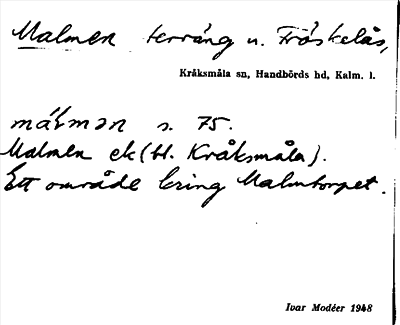 Malmen terräng u. Fröskelås,
Kråksmåla sn, Handbörds hd, Kalm. l.
mál̀mən s. 75.
Malmen ek (bl. Kråksmåla).
Ett område kring Malmtorpet.
Ivar Modéer 1948